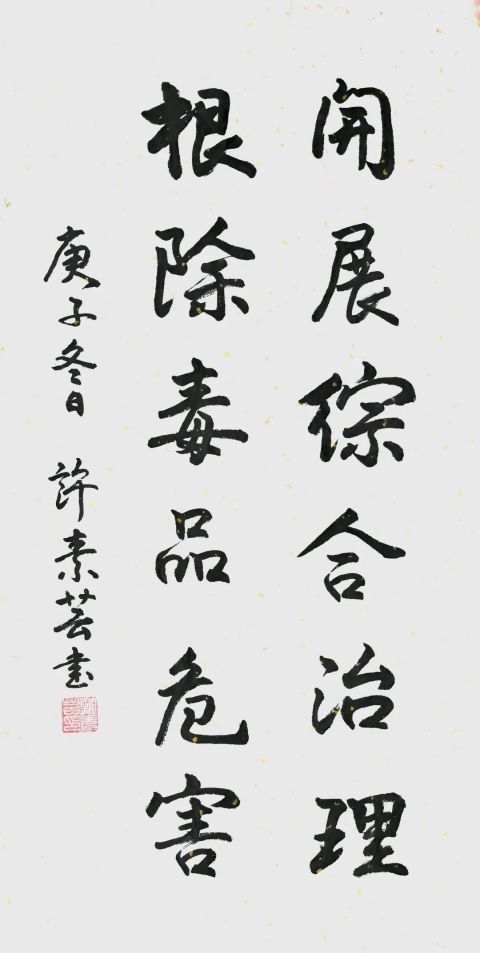 開展綜合治理
根除毒品危害
庚子冬日 許素芸書